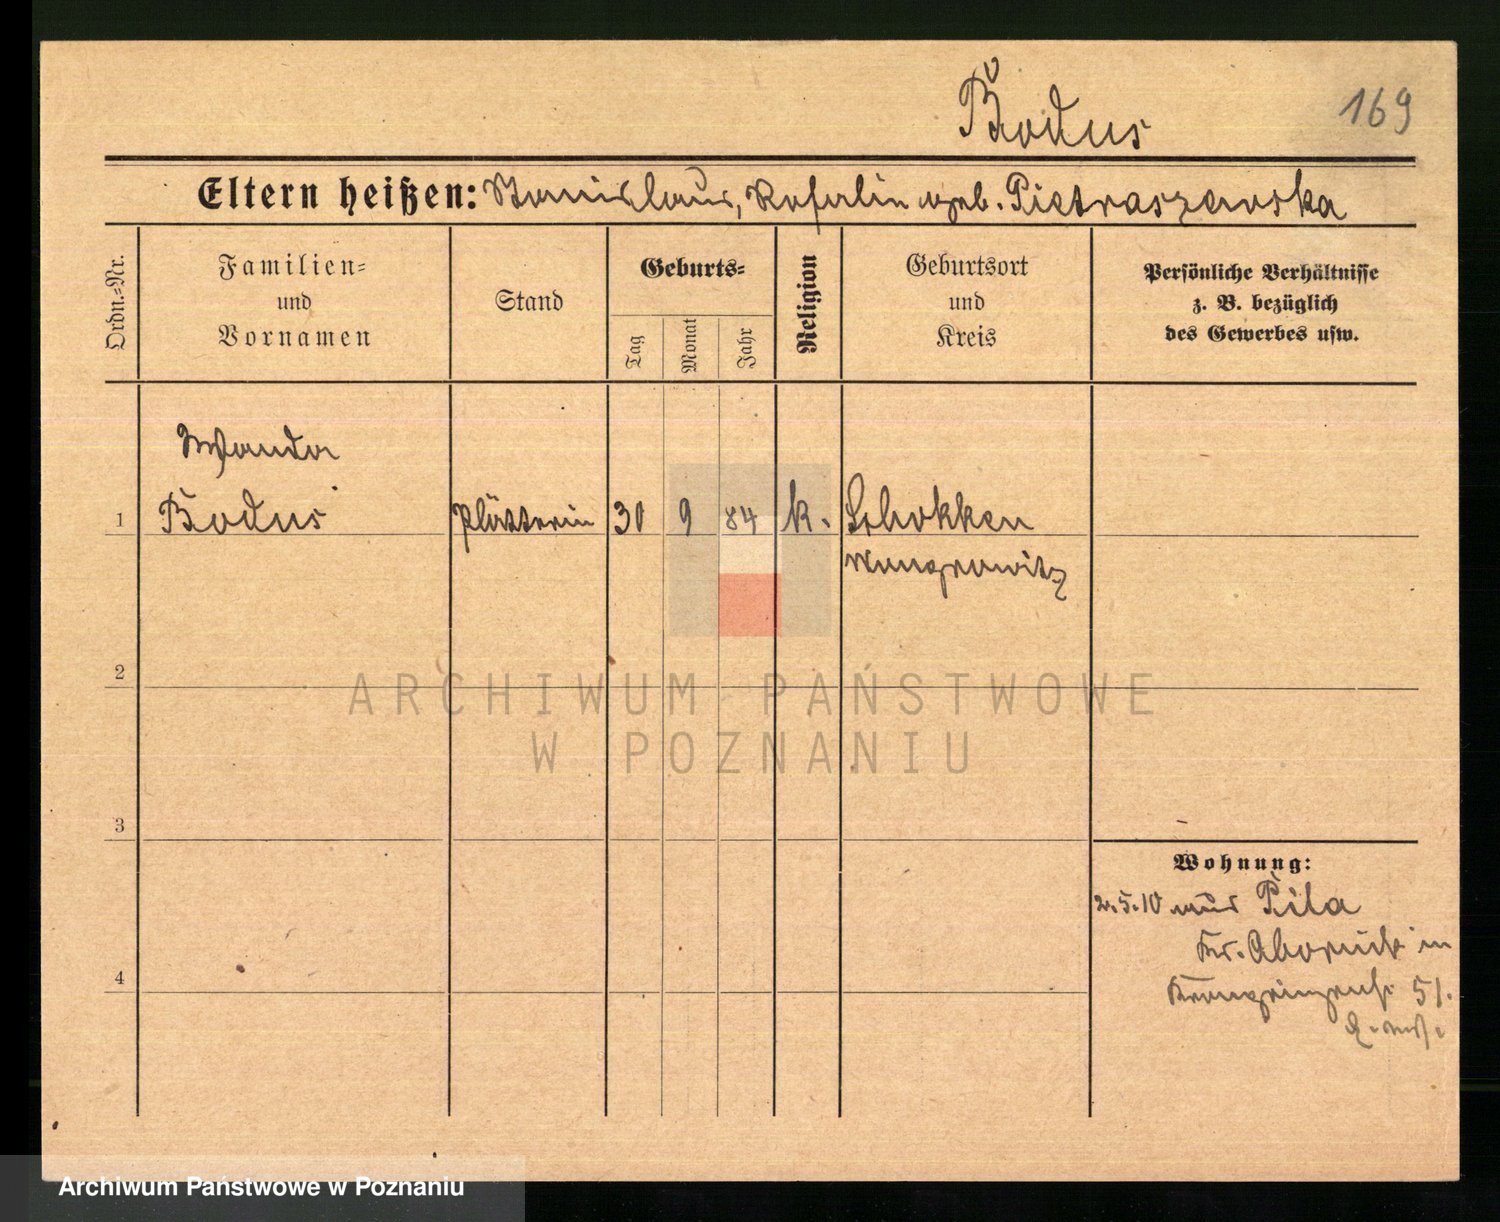 Bodus
169
Eltern heißen: Stanislaus, Rosalie geb. Pietraszewska
Ordn.-Nr.
Familien-
und
Vornamen
Stand
Geburts-
Tag
Monat
Jahr
Religion
Geburtsort
und
Kreis
Persönliche Verhältnisse
z. B. bezüglich
des Gewerbes usw.
Wanda
1 Bodus Plätterin 30 9 84 k. Schokken
Wongrowitz
2
3
4
Wohnung:
2.5.10 aus Pila
Kr. Obornik in
Kronprinzenstr 51.
ARCHIWUM PAŃSTWOWE
W POZNANIU
Archiwum Państwowe w Poznaniu